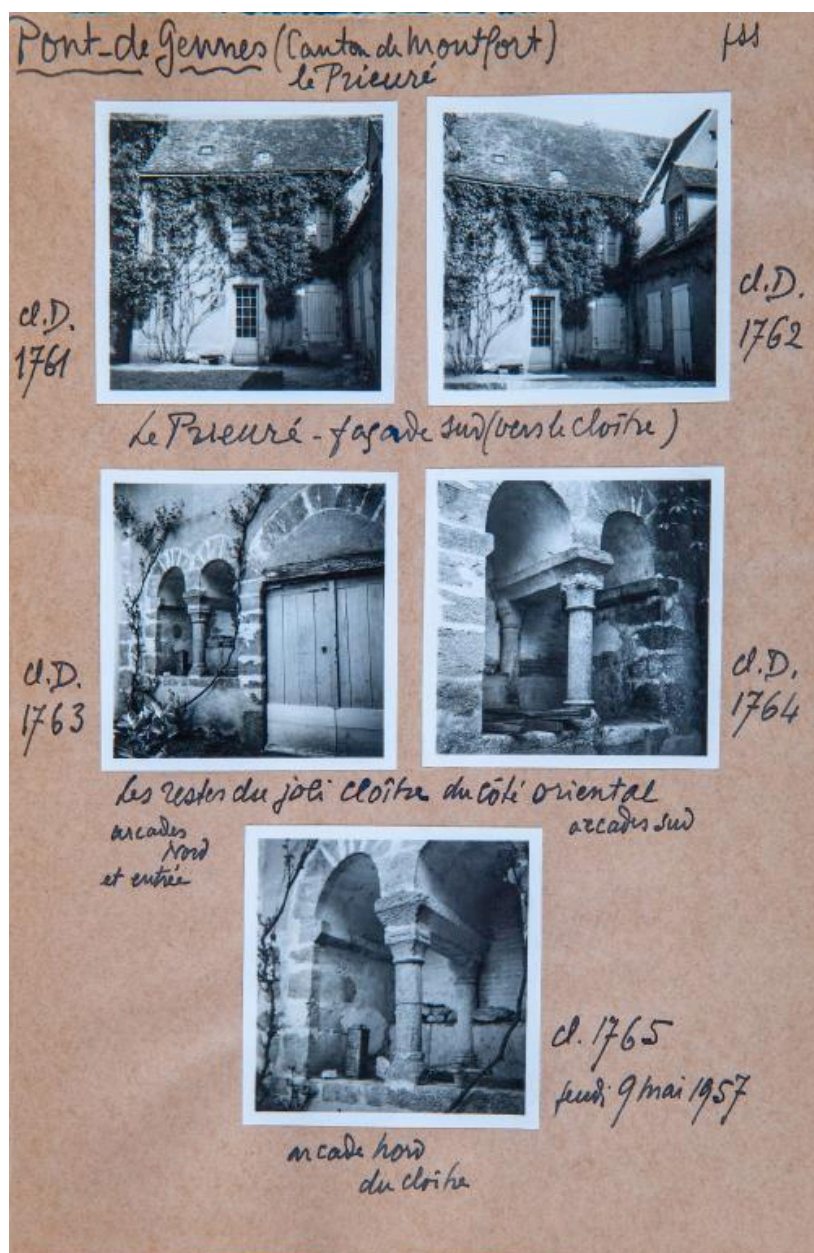 Pont-de Gennes (Canton de Montfort)
le Prieuré
cl. D.
1761
cl. D.
1762
Le Prieuré - façade sud (vers le cloître)
cl. D.
1763
cl. D.
1764
Les restes du joli cloître du côté oriental
arcades
Nord
et entrée
arcades sud
cl. 1765
jeudi 9 mai 1957
arcade nord
du cloître